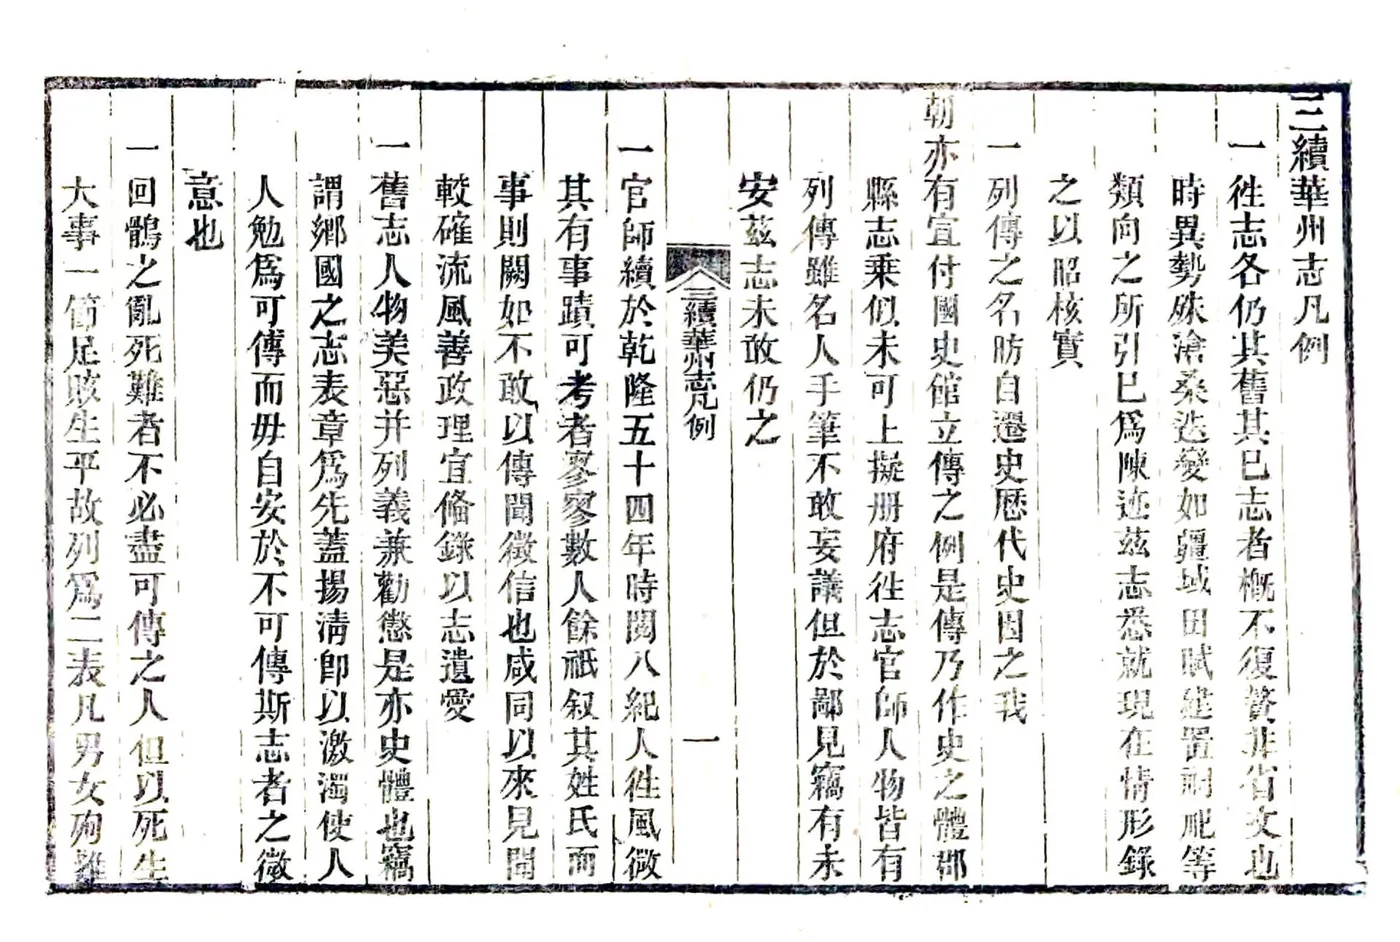 三續華州志凡例
一往志各仍其舊其已志者槪不復贅非省文也
時異勢殊滄桑迭變如疆域田賦建置祠祀等
類向之所引已爲陳迹兹志悉就現在情形錄
之以昭核實
一列傳之名昉自遷史歴代史因之我
朝亦有宜付國史館立傳之例是傳乃作史之體郡
縣志乘似未可上擬册府往志官師人物皆有
列傳雖名人手筆不敢妄議但於鄙見竊有未
安兹志未敢仍之
三續華州志凡例
一
一官師續於乾隆五十四年時閱八紀人往風微
其有事蹟可考者寥寥數人餘祇叙其姓氏而
事則闕如不敢以傳聞徵信也咸同以來見聞
較確流風善政理宜俻錄以志遺愛
一舊志人物美惡并列義兼勸懲是亦史體也竊
謂鄉國之志表章爲先蓋揚淸卽以激濁使人
人勉爲可傳而毋自安於不可傳斯志者之微
意也
一回鶻之亂死難者不必盡可傳之人但以死生
大事一節足賅生平故列爲二表凡男女殉難